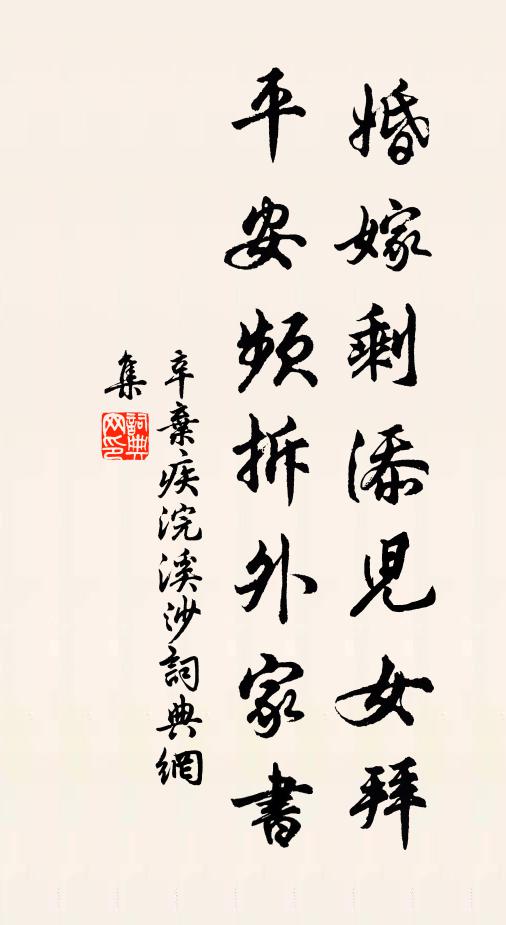 婚嫁剩添兒女拜
平安頻拆外家書
辛棄疾浣溪沙詞典網
集
詞典網印